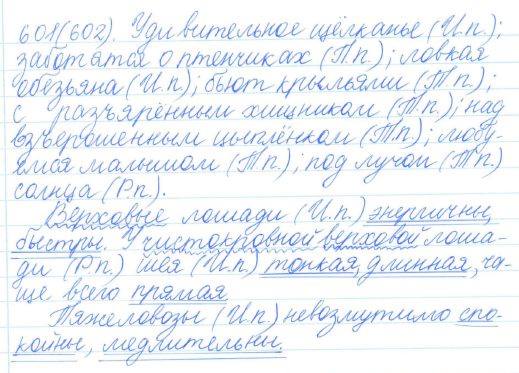 601(602). Удивительное щёлканье (И.п.);
заботятся о птенчиках (П.п.); ловкая
обезьяна (И.п.); бьют крыльями (Т.п.);
с разъярённым хищником (Т.п.); над
взъерошенным цыплёнком (Т.п.); любу-
емся малышом (Т.п.); под лучом (Т.п.)
солнца (Р.п.).
Верховые лошади (И.п.) энергичны,
быстры. У чистокровной верховой лоша-
ди (Р.п.) шея (И.п.) тонкая, длинная, ча-
ще всего прямая
Тяжеловозы (И.п.) невозмутимо спо-
койны, медлительны.